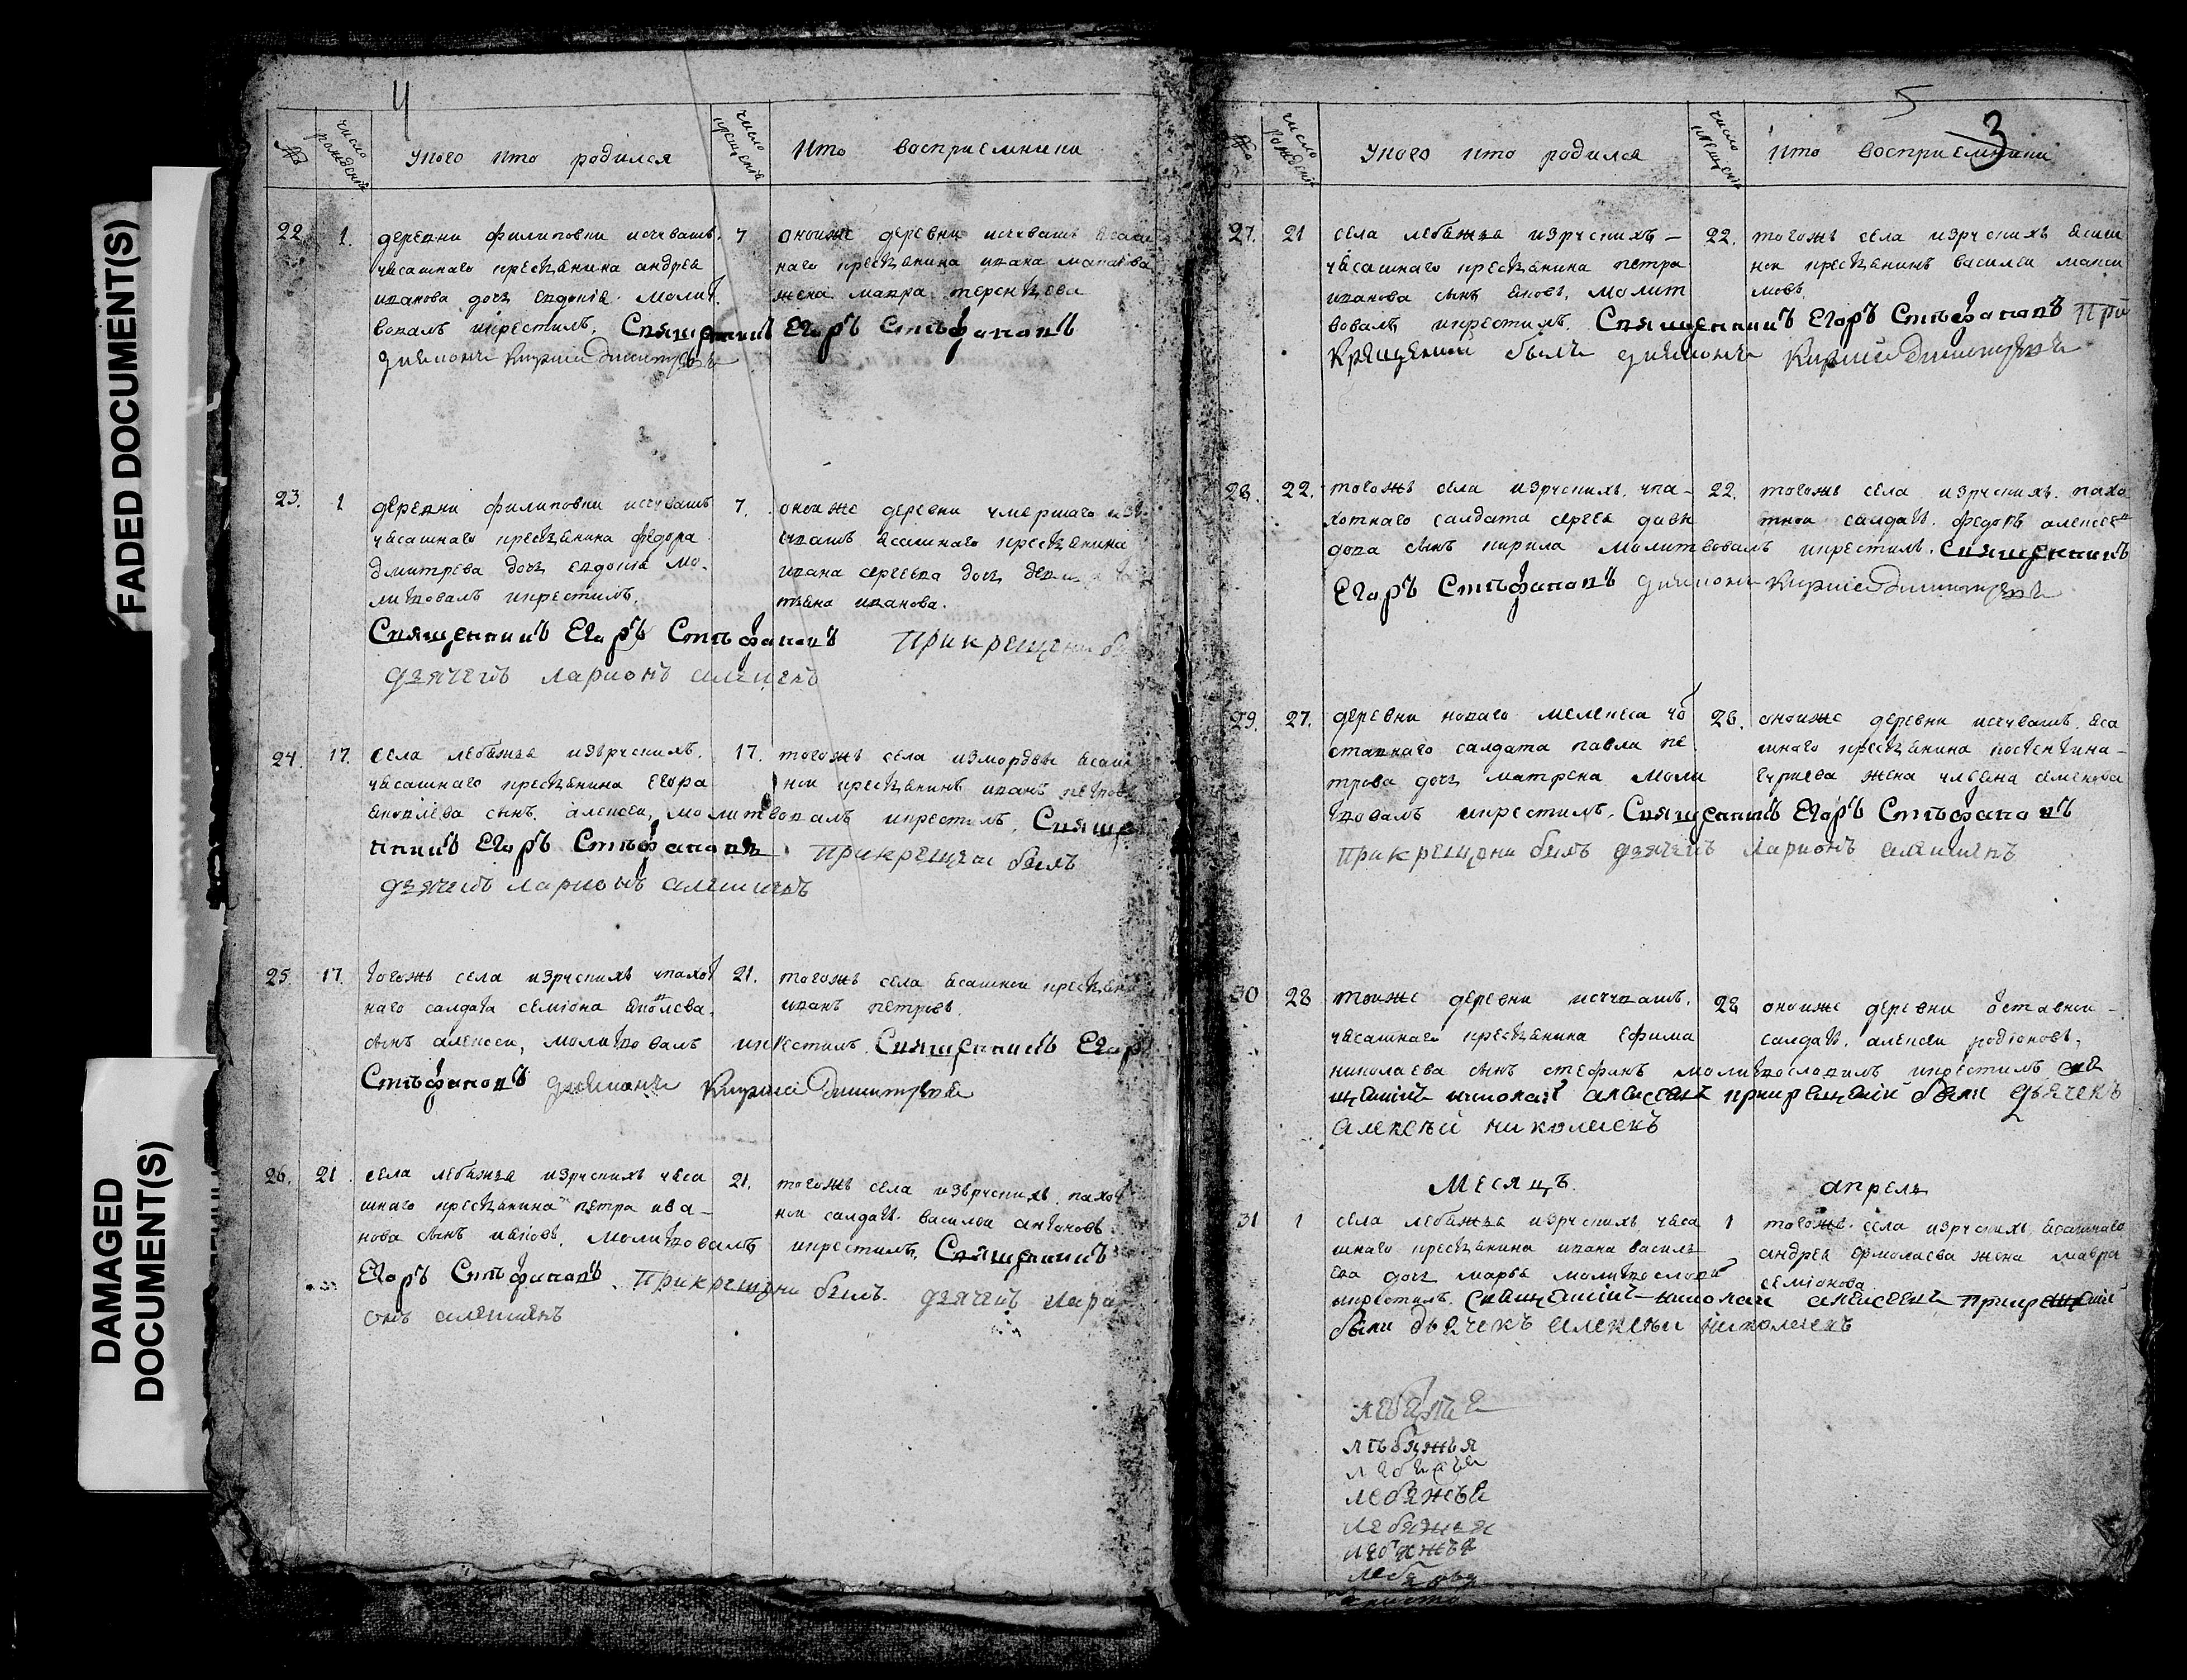 FADED DOCUMENT(S)
DAMAGED
DOCUMENT(S)
4
№
число рожденiя
у кого кто родился
число крещенiя
кто восприемники
22. 1. деревни филиповки исчувашъ
уясашнаго крестьянина андрея
иванова дочь евдокiя. молит
вовалъ икрестилъ. Священникъ Егоръ Стефановъ
дияконъ Кирила Димитриевъ
7 оноиже деревни исчувашъ ясаш
наго крестьянина ивана
жена мавра терентьева
23. 1 деревни филиповки исчувашъ
уясашнаго крестьянина федора
дмитрева дочь евдокiя мо-
литвовалъ икрестилъ.
Священникъ Егоръ Стефановъ При крещени
дьячекъ ларионъ алексеевъ
7. оноиже деревни умершаго
ясашнаго крестьянина
ивана сергеева дочь девка
иванова.
24. 17. села лебяжья изрускихъ.
уясашнаго крестьянина егора
яковлева сынъ. алексеи, молитвовалъ икрестилъ. Свяще
нникъ Егоръ Стефановъ. При крещени былъ
дьячекъ ларионъ алексеевъ
17. тогожъ села измордвы ясаш
нои крестьянинъ иванъ петровъ
25. 17. тогожъ села изрускихъ упахот
наго салдата семiона яковлева.
сынъ алексеи, молитвовалъ икрестилъ. Священникъ Егоръ
Стефановъ дияконъ Кирила Димитриевъ
21. тогожъ села ясашнои крестьянинъ
иванъ петровъ.
26. 21. села лебяжья изрускихъ уяса
шнаго крестьянина петра ива-
нова сынъ яковъ. молитвовалъ икрестилъ. Священникъ
Егоръ Стефановъ. При крещени былъ. дьячекъ лари
онъ алексеевъ
21. тогожъ села изрускихъ. пахот
нои салдатъ. василеи антоновъ.
5
3
№
число рожденiя
у кого кто родился
число крещенiя
кто восприемники
27. 21 села лебяжья изрускихъ -
уясашнаго крестьянина петра
иванова сынъ яковъ. молит
вовалъ икрестилъ. Священникъ Егоръ Стефановъ При
Крещении былъ дияконъ Кирила Димитриевъ
22. тогожъ села изрускихъ ясаш
нои крестьянинъ василеи макси
мовъ.
28. 22. тогожъ села изрускихъ. упа-
хотнаго салдата сергея давы
дова сынъ кирила молитвовалъ икрестилъ. Священникъ
Егоръ Стефановъ дияконъ Кирила Димитриевъ
22. тогожъ села изрускихъ. пахо
тнои салдатъ. федоръ алексеевъ
29. 27. деревни новаго мелекеса уо
ставнаго салдата павла пе
трова дочь матрена моли
твовалъ икрестилъ. Священникъ Егоръ Стефановъ
При крещени былъ дьячекъ ларионъ алексеевъ
28. оноиже деревни исчувашъ. яса
шнаго крестьянина костентина-
жена ульяна семенова
30 28 тоиже деревни исчувашъ.
уясашнаго крестьянина ефима
николаева сынъ стефанъ молитвословилъ икрестилъ свя
щенникъ николай алексеевъ при крещенiи были дьячекъ
алексъй николаевъ
28 оноиже деревни отставнои -
салдатъ. алексеи родiоновъ.
Месяцъ. апрель
31 1 села лебяжья изрускихъ уяса
шнаго крестьянина ивана василь
ева дочь марья молитвословилъ
икрестилъ. священникъ николаи алексеевъ при крещенiи
были дьячекъ алексъи николаевъ
1 тогожъ села изрускихъ. ясашнаго
андрея ермолаева жена мавра
семiонова
лебяжье
лъбяжья
лебяжья
лебяжья
лебяжья